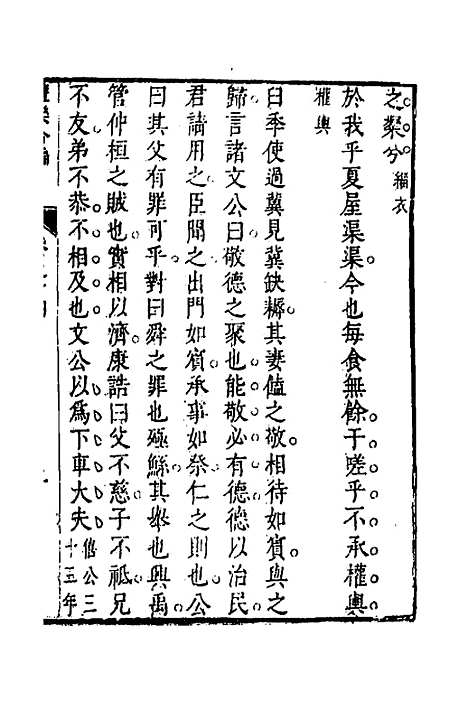 之粲兮緇衣
於我乎夏屋渠渠今也每食無餘于嗟乎不承權輿
權輿
臼季使過冀見冀缺耨其妻饁之敬相待如賓與之
歸言諸文公曰敬德之聚也能敬必有德德以治民
君請用之臣聞之出門如賓承事如祭仁之則也公
曰其父有罪可乎對曰舜之罪也殛鯀其舉也興禹
管仲桓之賊也實相以濟康誥曰父不慈子不祗兄
不友弟不恭不相及也文公以爲下車大夫僖公三十三年